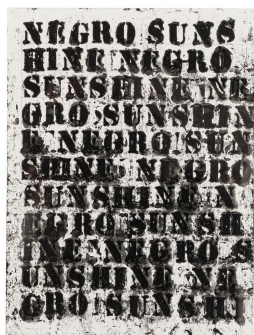 NEGRO SUNS
HINE NEGRO
SUNSHINE NE
GRO SUNSHIN
E NEGRO SUN
SHINE NEGRO
SUNSHINE N
EGRO SUNSH
INE NEGRO S
UNSHINE NE
GRO SUNSHI